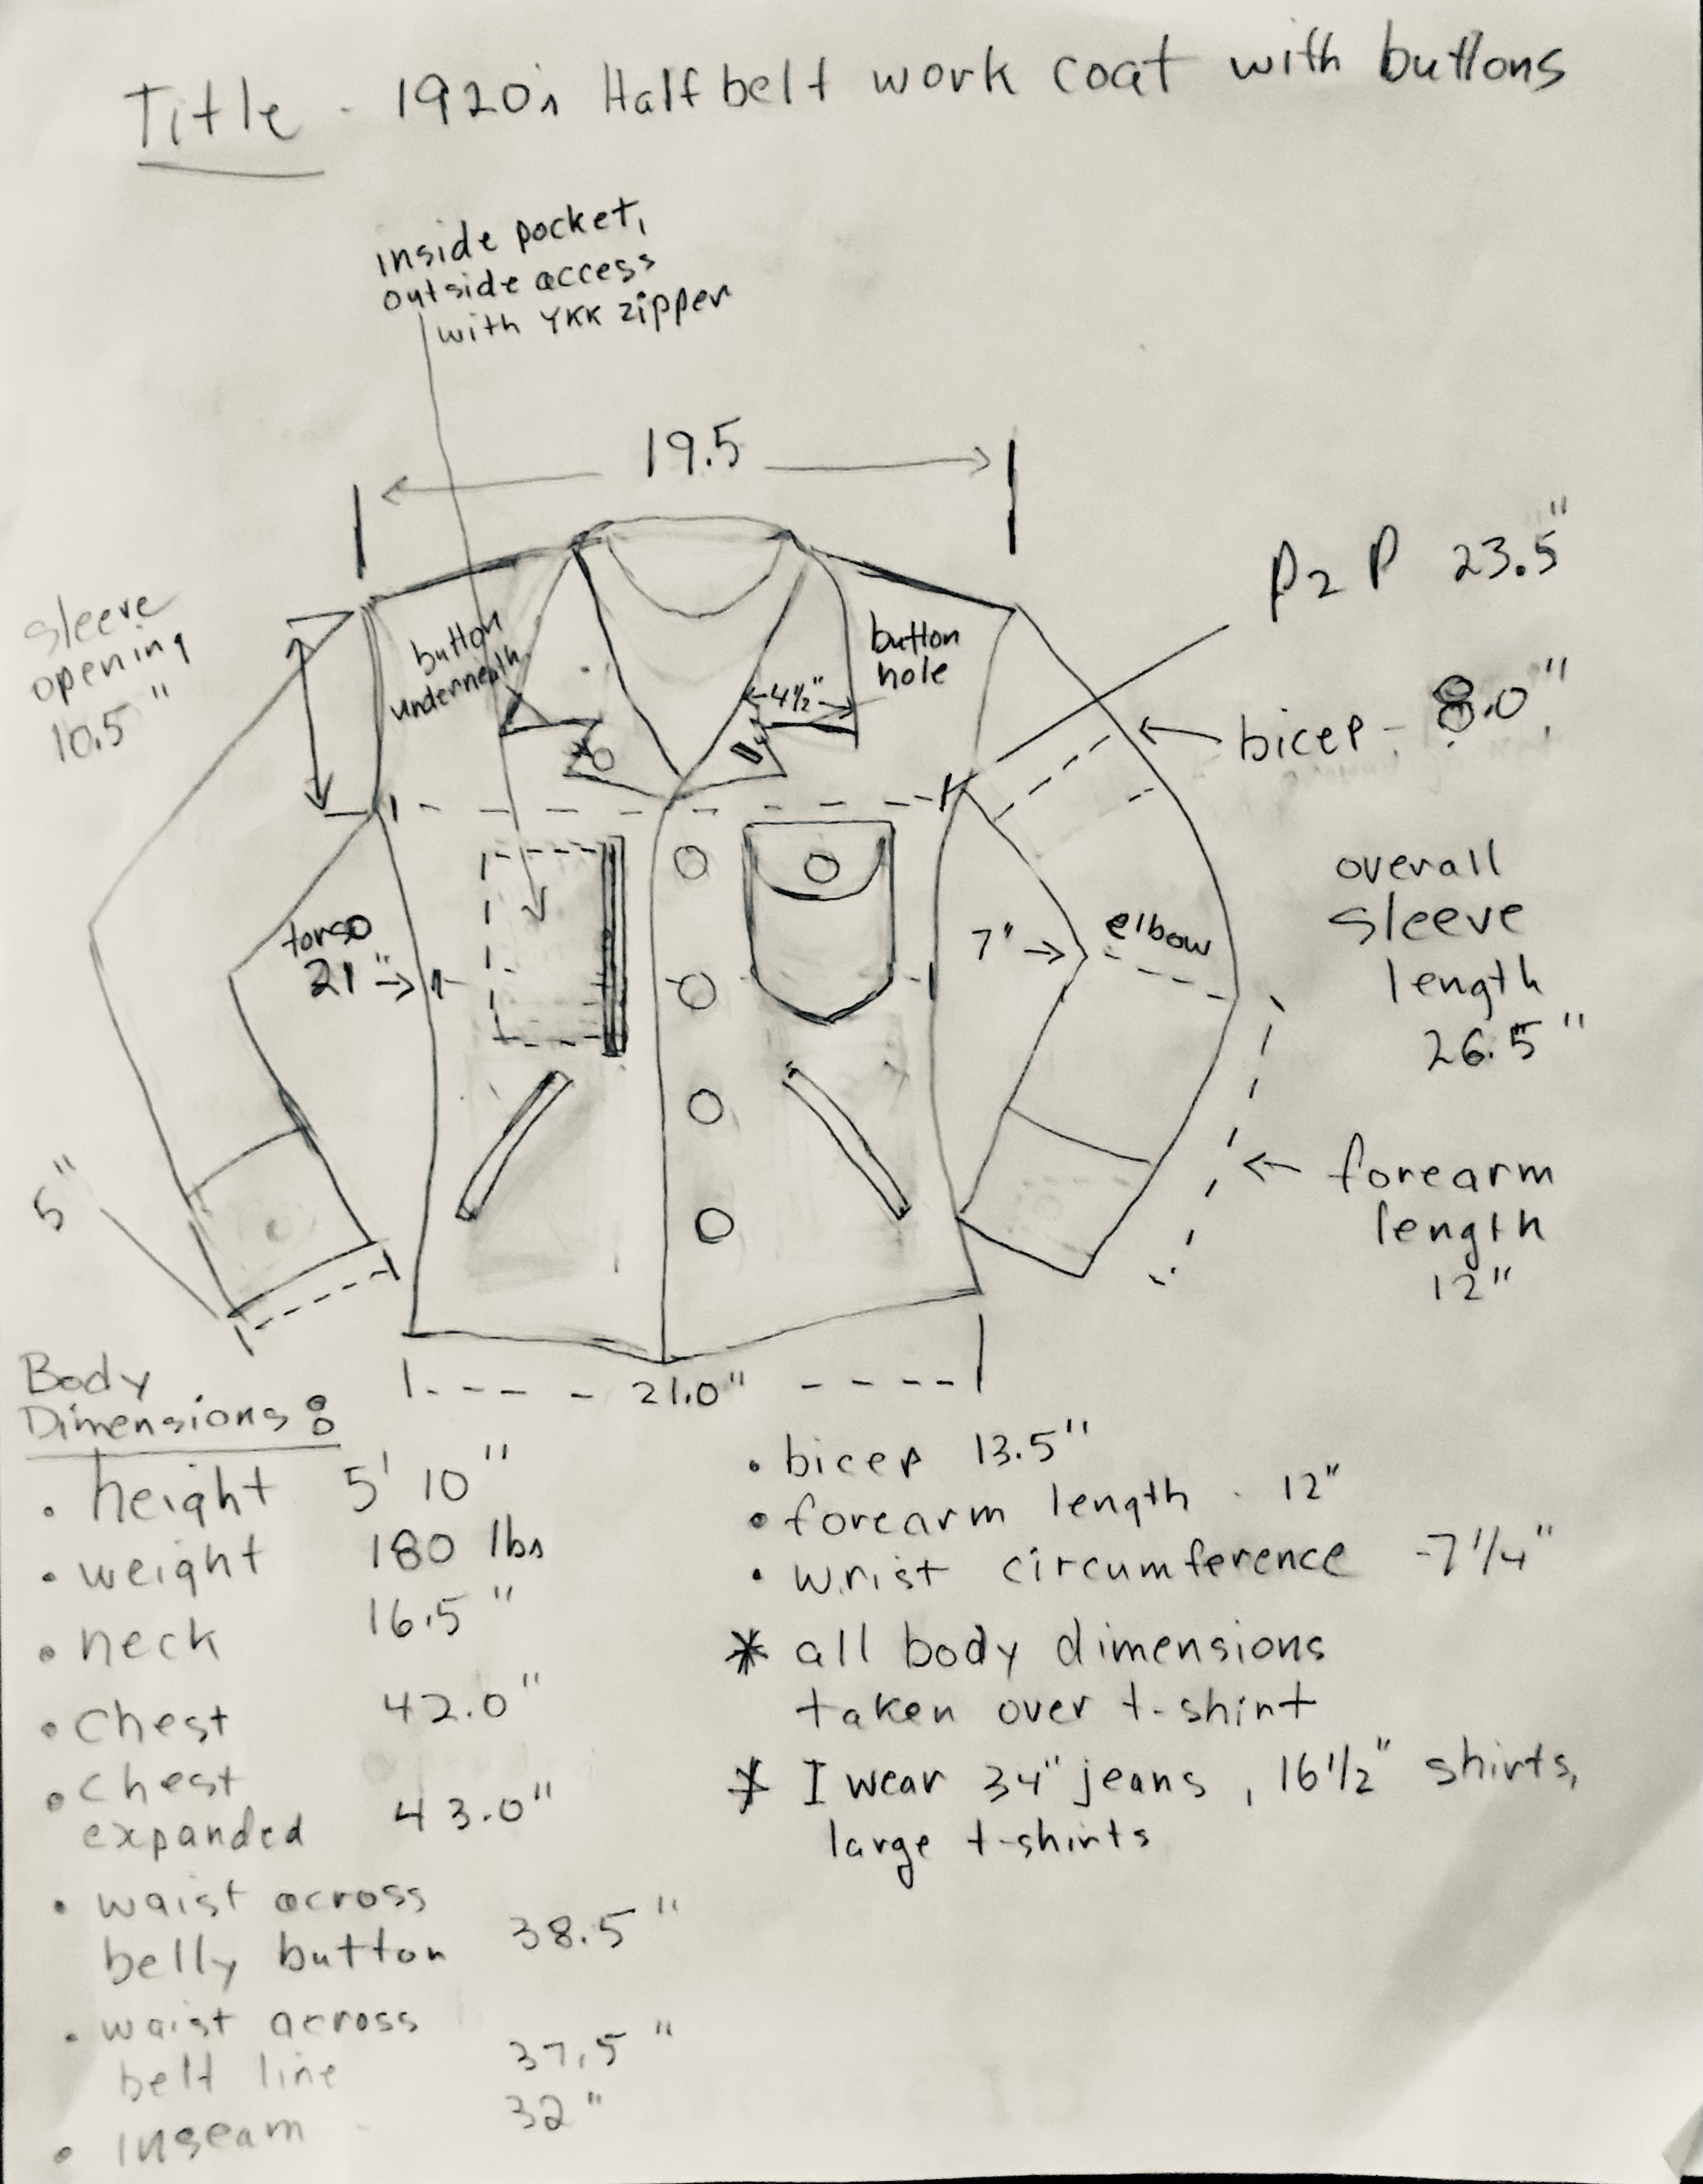 Title - 1920's Half belt work coat with buttons
inside pocket,
outside access
with YKK zipper
19.5
P2P 23.5"
sleeve
opening
10.5"
button
underneath
4½"
button
hole
bicep - 8.0"
torso
21"
7"
elbow
overall
sleeve
length
26.5"
forearm
length
12"
5"
21.0"
Body
Dimensions:
• height 5' 10"
• weight 180 lbs
• neck 16.5"
• chest 42.0"
• chest
expanded 43.0"
• waist across
belly button 38.5"
• waist across
belt line 37.5"
• inseam 32"
• bicep 13.5"
• forearm length - 12"
• wrist circumference - 7 1/4"
* all body dimensions
taken over t-shirt
* I wear 34" jeans, 16 1/2" shirts,
large t-shirts